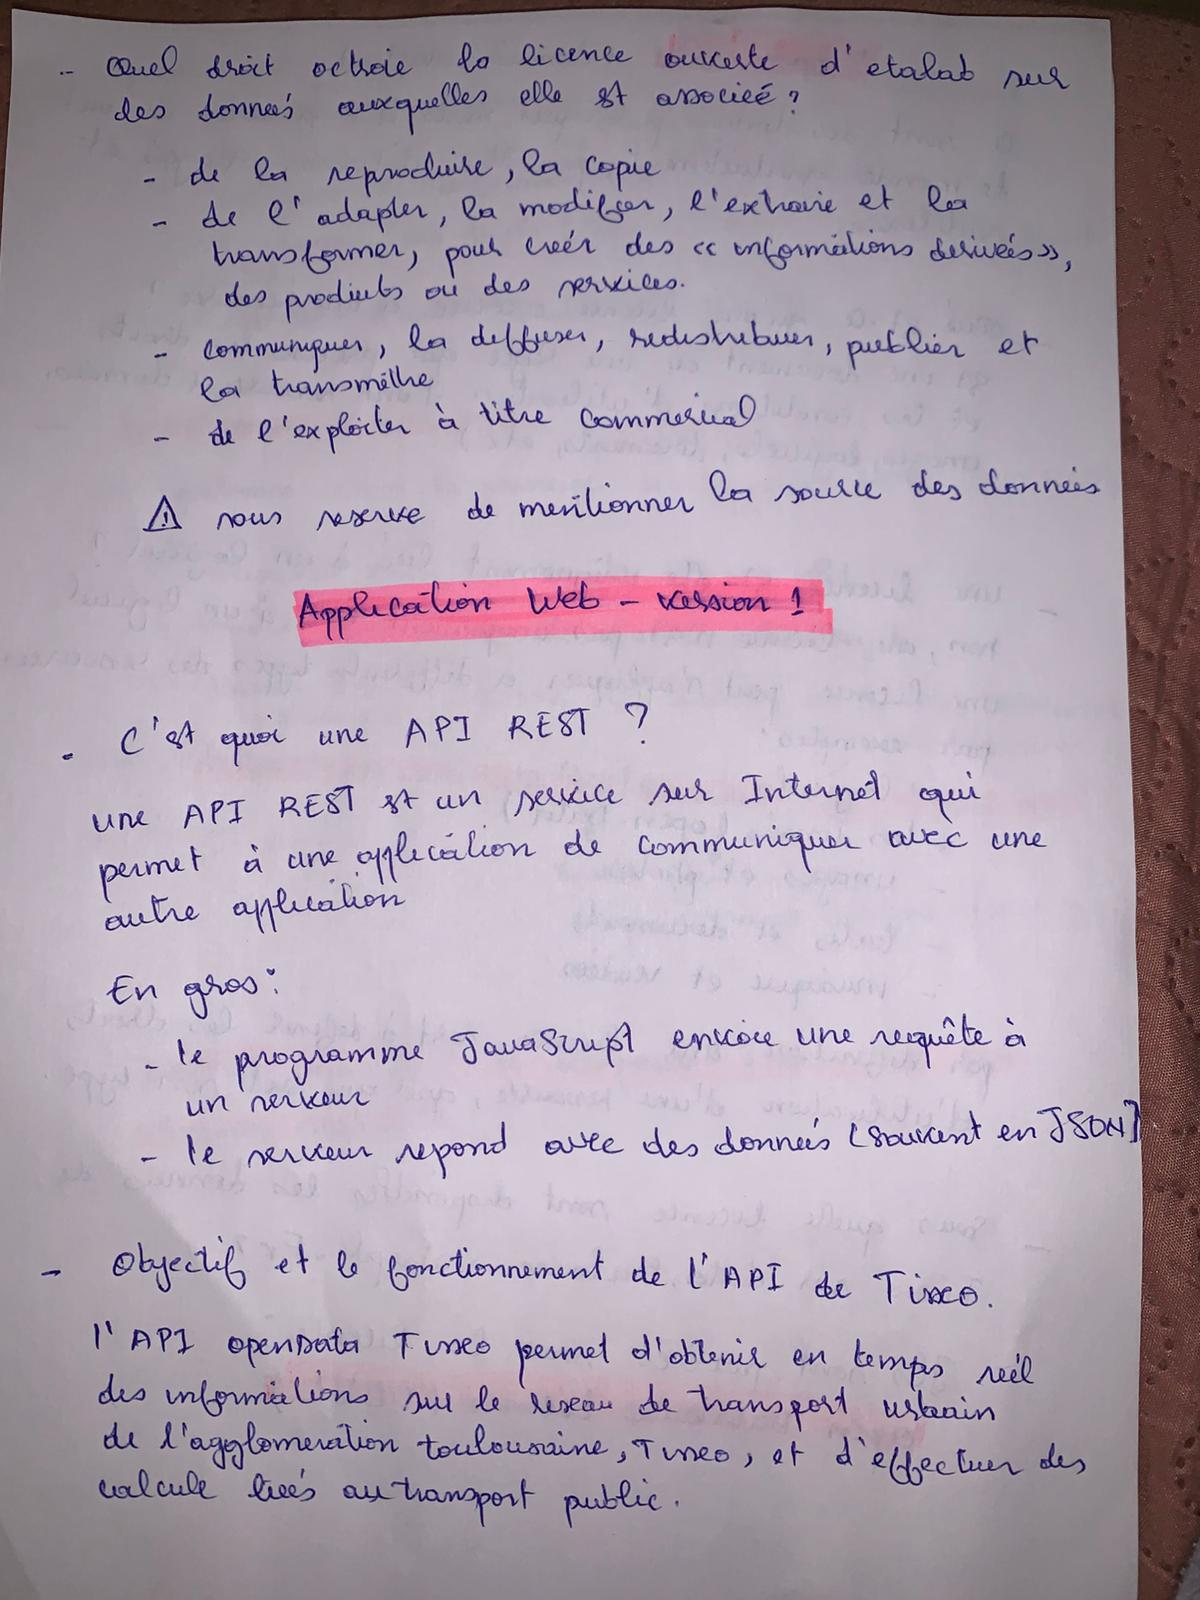 - Quel droit octroie la licence ouverte d'etalab sur
des données auxquelles elle est associeé ?
- de la reproduire, la copie
- de l'adapter, la modifier, l'extraire et la
transformer, pour creér des « informations deriveés »,
des produits ou des services.
- communiquer, la diffuser, redistribuer, publier et
la transmettre
- de l'exploiter à titre commercial
⚠ sous reserve de mentionner la source des données
Application Web - version 1
- C'est quoi une API REST ?
une API REST est un service sur Internet qui
permet à une application de communiquer avec une
autre application
En gros:
- le programme JavaScript envoie une requête à
un serveur
- le serveur repond avec des données (souvent en JSON)
- Objectif et le fonctionnement de l'API de Tisseo.
l'API openData Tisseo permet d'obtenir en temps reél
des informations sur le reseau de transport urbain
de l'agglomeration toulousaine, Tisseo, et d'effectuer des
calcule lieés au transport public.